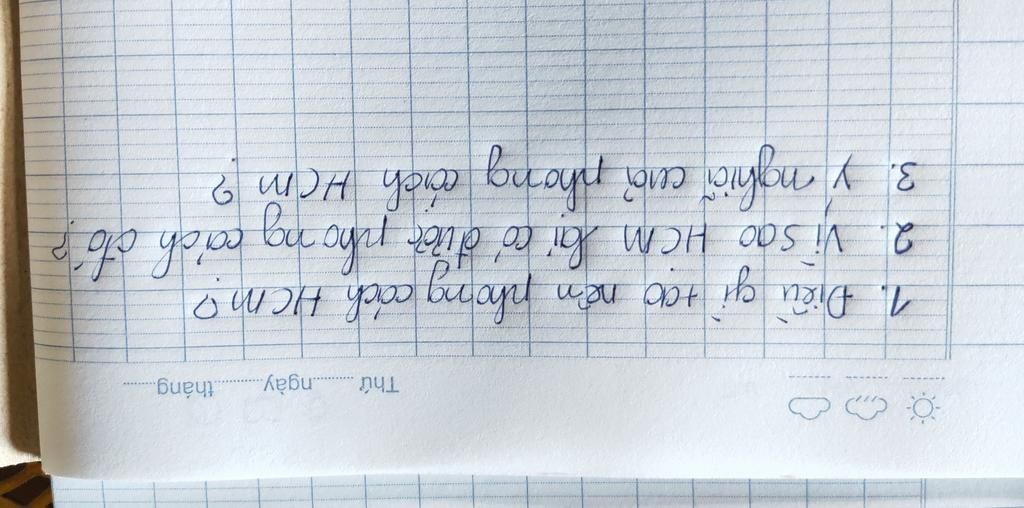 Thứ ........ ngày ........ tháng ........
1. Điều gì tạo nên phong cách HCM?
2. Vì sao HCM lại có được phong cách đó?
3. Ý nghĩa của phong cách HCM?